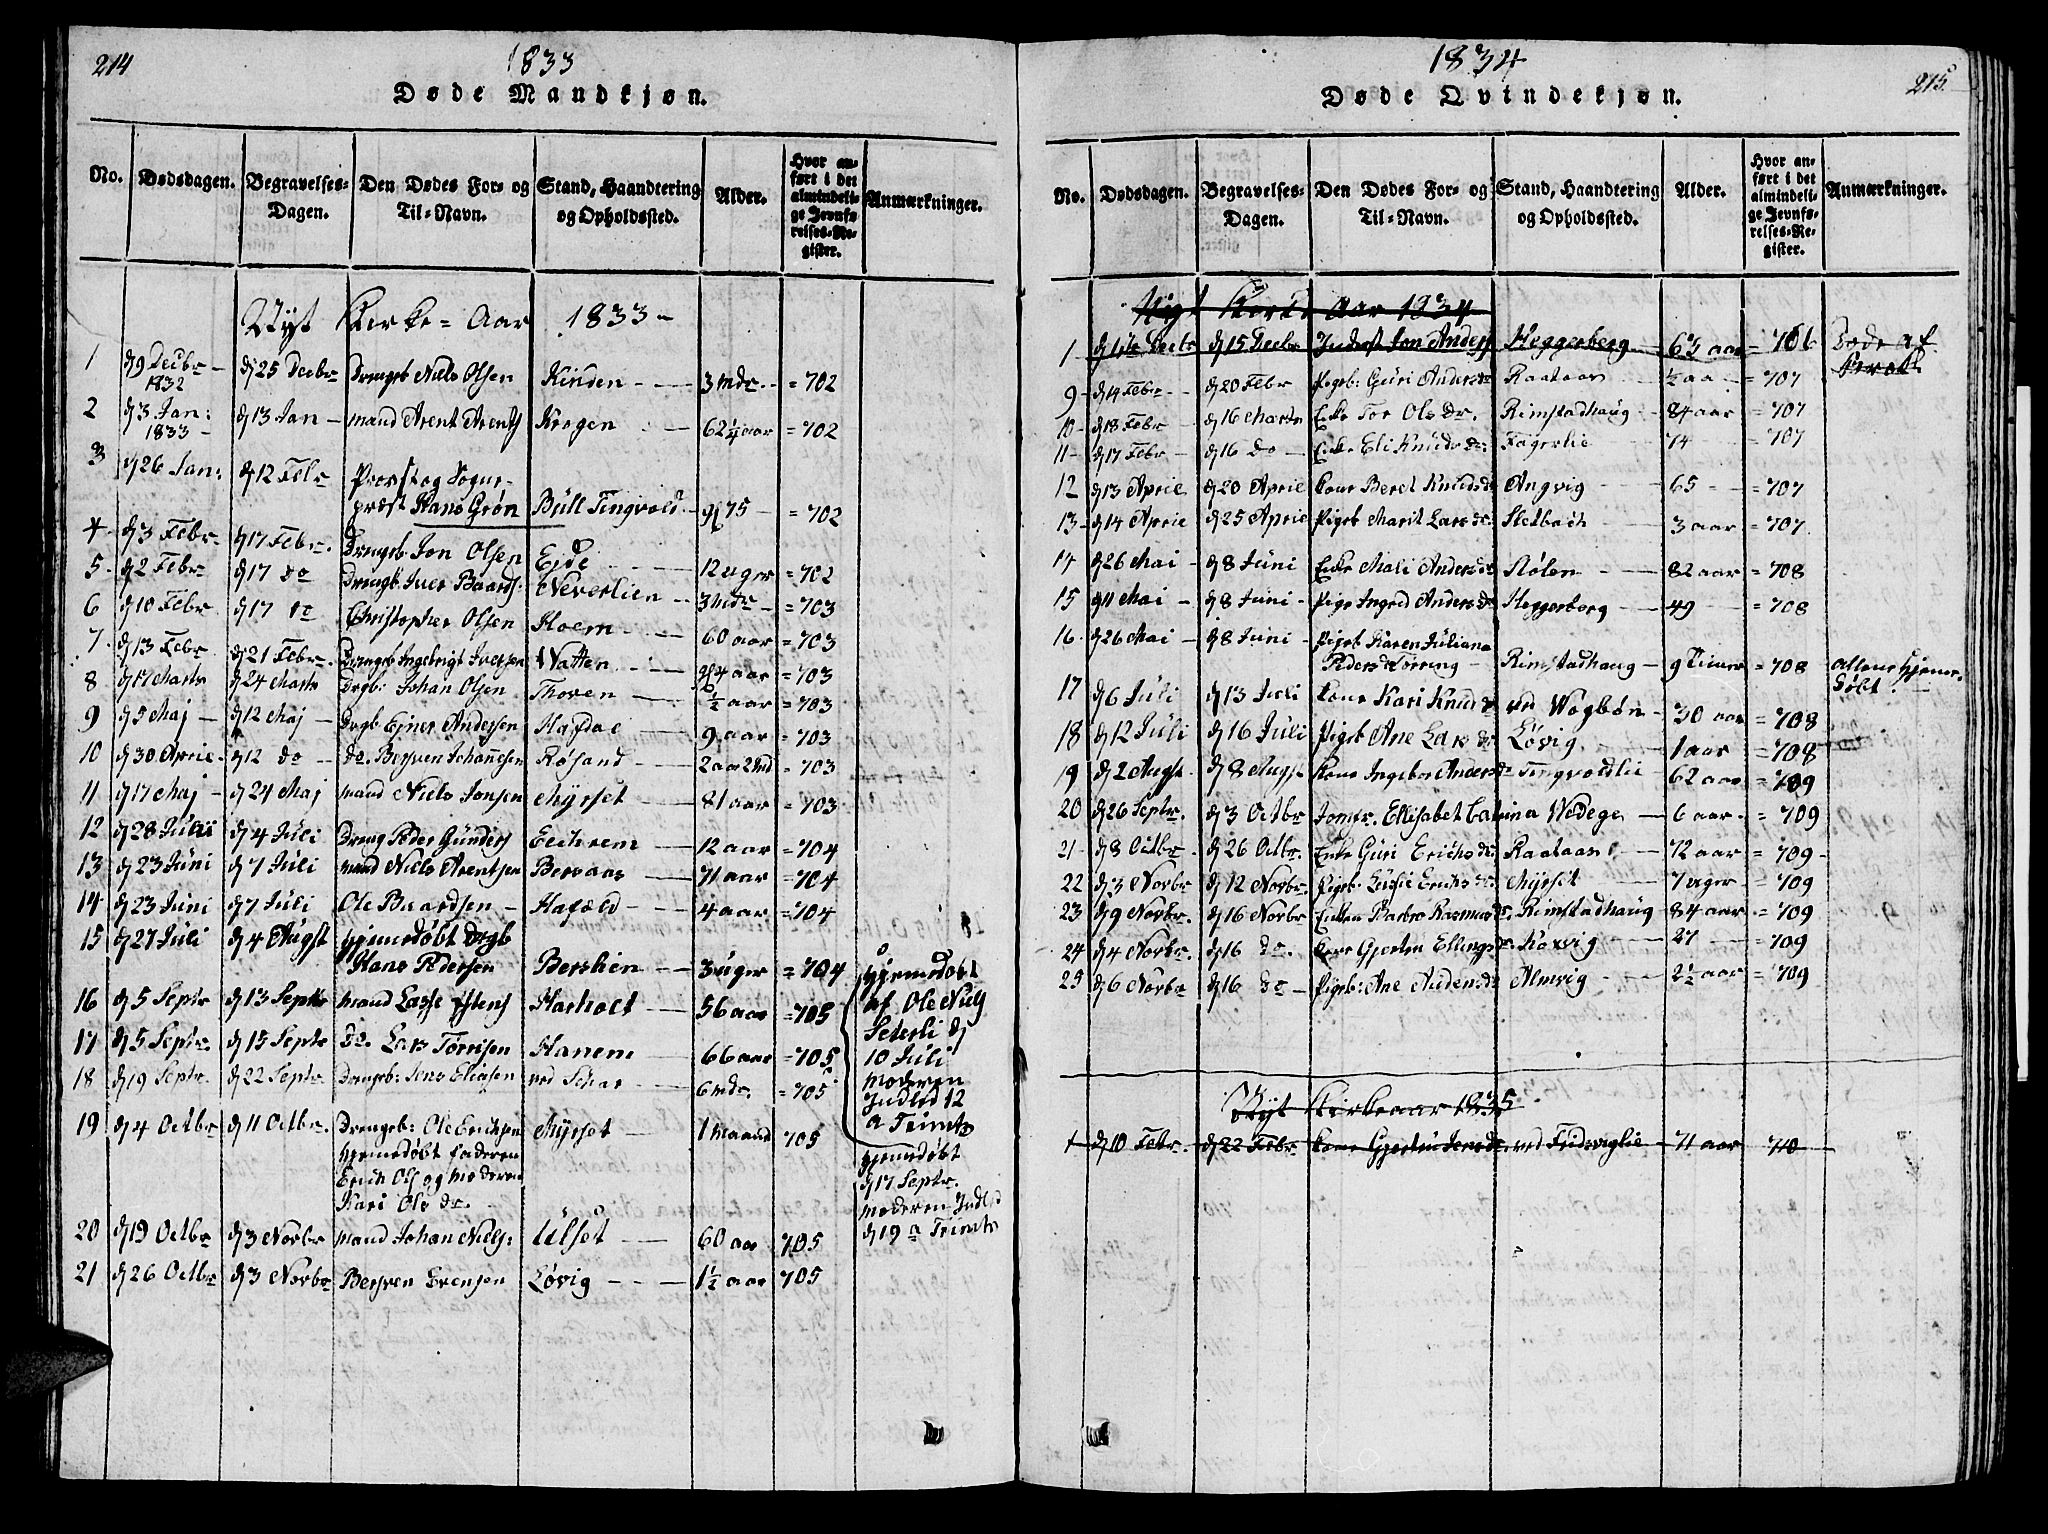 214
1833
Døde Mandkjøn.
No. Dødsdagen. Begravelses-Dagen. Den Dødes For- og Til-Navn. Stand, Haandtering og Opholdssted. Alder. Hvor anført i det almindelige Jevnførelses-Register. Anmærkninger.
Nyt Kirke-Aar 1833
1 d 9 Decbr 1832 d 25 Decbr Drengeb Niels Olsen Kinden 3 mdr = 702
2 d 3 Jan: 1833 d 13 Jan mand Arent Arents Krogen 62 1/4 aar = 702
3 d 26 Jan: d 12 Febr Provst og Sogne-
præst Hans Grøn Bull Tingvold 75 = 702
4 d 3 Febr d 17 Febr. Drengeb Jon Olsen Eide 12 uger = 702
5 d 2 Febr d 17 do Drengb Iver Baards: Neverlien 3 mdr = 703
6 d 10 Febr d 17 do Christopher Olsen Hoem 60 aar = 703
7 d 13 Febr d 21 Febr. Drengeb Ingebrigt Iversen Watten 4 aar = 703
8 d 17 Marts d 24 Marts Drgb: Johan Olsen Thoren 1/2 aar = 703
9 d 5 Maj d 12 Maj Drgb Ejner Andersen Hafdal 9 aar = 703
10 d 30 April d 12 do do. Bersven Johannesen Røsand 2 aar 2 md = 703
11 d 17 Maj d 24 Maj mand Niels Jonsen Myrset 81 aar = 703
12 d 28 Juni d 4 Juli Dreng Peder Gunders Eechrem 12 aar = 704
13 d 23 Juni d 7 Juli mand Niels Arentsen Beraas 71 aar = 704
14 d 23 Juni d 7 Juli Ole Baardsen Hafæld 4 aar = 704
15 d 27 Juli d 4 Augst hjemedøbt Drgb
Hans Pedersen Berslien 3 uger = 704 hjemedøbt
af Ole Niels
Seterli d
10 Juli
moderen
Indled 12
a Trinits
16 d 5 Septr d 13 Septbr mand Lasse Estens Harholt 56 aar = 705
17 d 5 Septr. d 15 Septr Do. Lars Torrisen Hanem 66 aar = 705
18 d 19 Septr. d 22 Septr. Drengeb: Jens Eliasen ved Schar 6 mdr. = 705
19 d 4 Octbr d 11 Octbr. Drengeb: Ole Ericksen Myrset 1 maand 705
hjemedøbt faderen
Erich Ols og moderen
Kari Ols dr.
hjemedøbt
d 17 Septr.
moderen Indled
d 19 a Trinits
20 d 19 Octbr d 3 Novbr mand Johan Niels: Ulset 60 aar 705
21 d 26 Octbr d 3 Novbr Bersven Evensen Løvig 1 1/2 aar 705
215
1834
Døde Qvindekjøn.
No. Dødsdagen. Begravelses-Dagen. Den Dødes For- og Til-Navn. Stand, Haandtering og Opholdssted. Alder. Hvor anført i det almindelige Jevnførelses-Register. Anmærkninger.
Nyt Kirke Aar 1834
1 Decbr d 15 Decbr Inderst Jon Anders Heggerberg aar = 706 Døde af
9 d 14 Febr d 20 Febr Pigeb: Guri Anders dr Raataas 1/2 aa = 707
10 d 18 Febr d 16 Marts Enke Tor Ols dr. Rimstadhaug 84 aar = 707
11 d 17 Febr d 16 do Enke Eli Knuds dr: Fagerlie 74 = 707
12 d 13 April d 20 April Kone Beret Knuds dr Angvig 65 = 707
13 d 14 April d 25 April Pigeb Marit Lars dr: Stedbach 3 aar = 707
14 d 26 Mai d 8 Juni Enke Mali Anders dr Rølen 82 aar = 708
15 d 11 Mai d 8 Juni Pige Ingrid Anders dr Heggerberg 49 = 708
16 d 26 Mai d 8 Juni Pigeb Karen Juliana
Peders dr Torring Rimstadhaug 9 Timer = 708 allene Hjemmedøbt.
17 d 6 Juli d 13 Juli Kone Kari Knuds dr ved Wogbøn 30 aar = 708
18 d 12 Juli d 16 Juli Pigeb Ane Lars dr Løvig 1 aar = 708
19 d 2 Augst. d 8 Augst Kone Ingebor Anders dr Tingvoldlie 62 aar = 709
20 d 26 Septr. d 3 Octbr Jomfr. Ellisabet Catrina Wedege 6 aar = 709
21 d 8 Octbr. d 26 Octbr. Enke Guri Erichs dr Raataas 72 aar = 709
22 d 3 Novbr d 12 Novbr. Pigeb. Lussie Erichs dr. Myrset 7 uger = 709
23 d 9 Novbr. d 16 Novbr Enken Barbro Rasmus dr. Rimstadhaug 84 aar = 709
24 d 4 Novbr. d 16 do. Kone Gjerten Ellings dr. Korvig 27 = 709
25 d 6 Novbr d 16 do Pigeb: Ane Audens dr Almvig 2 1/2 aar = 709
Nyt Kirkeaar 1835
1 d 10 Febr. d 22 Febr. Kone Gjertru Jens dr. ved Fridsviglie 71 aar 710